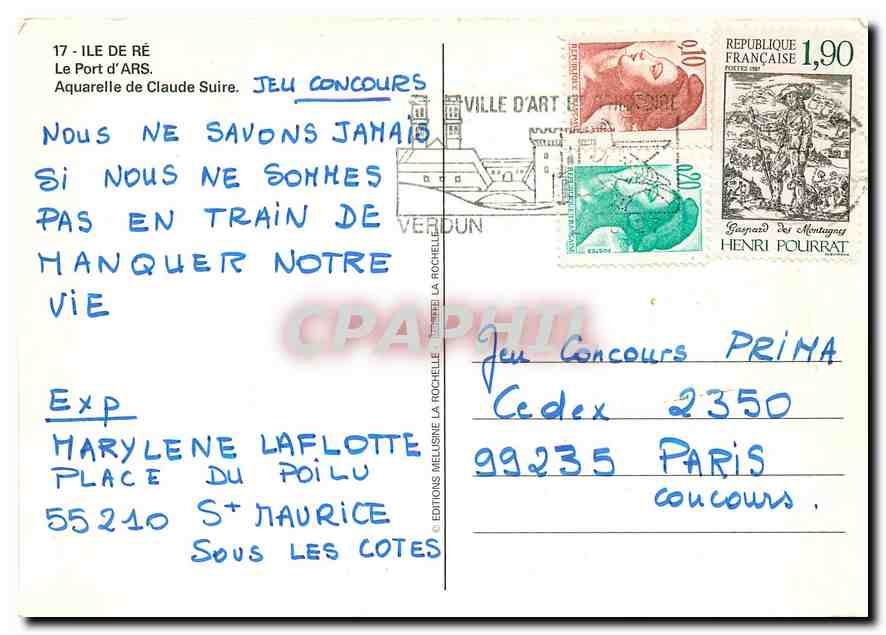 17 - ILE DE RÉ
Le Port d'ARS.
Aquarelle de Claude Suire.
JEU CONCOURS
NOUS NE SAVONS JAMAIS
SI NOUS NE SOMMES
PAS EN TRAIN DE
MANQUER NOTRE
VIE
Exp
MARYLENE LAFLOTTE
PLACE DU POILU
55210 St MAURICE
SOUS LES COTES
© EDITIONS MELUSINE LA ROCHELLE - LA ROCHELLE
VILLE D'ART
VERDUN
0,10
REPUBLIQUE
0,20
REPUBLIQUE
FRANÇAISE 1,90
POSTES 1987
Gaspard des Montagnes
HENRI POURRAT
CPAPHIL
Jeu Concours PRIMA
Cedex 2350
99235 PARIS
concours.